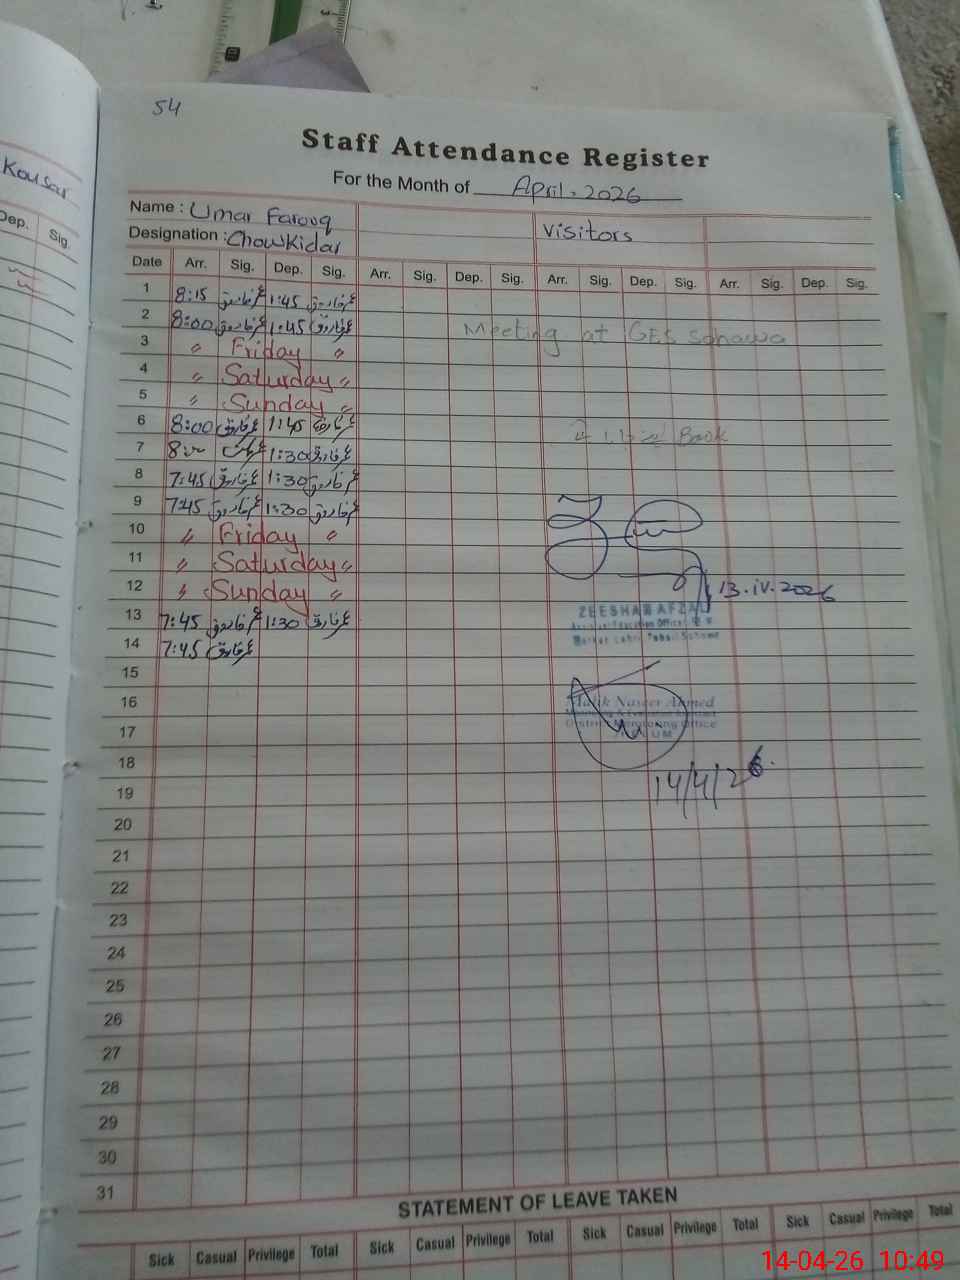 54
Staff Attendance Register
For the Month of April. 2026
Kousar
Name : Umar Farooq
Visitors
Designation : Chowkidar
Dep. Sig.
Date Arr. Sig. Dep. Sig. Arr. Sig. Dep. Sig. Arr. Sig. Dep. Sig. Arr. Sig. Dep. Sig.
1 8:15 عمر فاروق 1:45 عمر فاروق
2 8:00 عمر فاروق 1:45 عمر فاروق Meeting at GES Sohawa
3 " Friday "
4 " Saturday "
5 " Sunday "
6 8:00 عمر فاروق 1:45 عمر فاروق
7 8:00 1:30 عمر فاروق Book
8 7:45 عمر فاروق 1:30 عمر فاروق
9 7:45 عمر فاروق 1:30 عمر فاروق
10 " Friday "
11 " Saturday "
12 " Sunday " 13.iv.2026
ZEESHAN AFZAL
13 7:45 عمر فاروق 1:30 عمر فاروق
Assistant Education Officer
14 7:45 عمر فاروق
15
16 Malik Naseer Ahmed
17
District Monitoring Office
JHELUM
18
14/4/26.
19
20
21
22
23
24
25
26
27
28
29
30
31
STATEMENT OF LEAVE TAKEN
Sick Casual Privilege Total Sick Casual Privilege Total Sick Casual Privilege Total Sick Casual Privilege Total
14-04-26 10:49